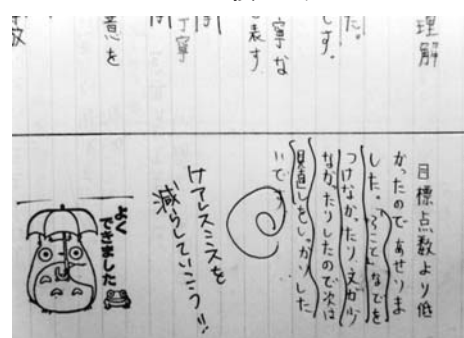 理解
た。
す。
寧な
表す
丁寧
意を
目標点数より低
かったので あせりま
した。「〜こと」などを
つけなかったり、文が少
なかったりしたので次は
見直しをしっかりした
いです。
ケアレスミスを
減らしていこう!!
よく
できました